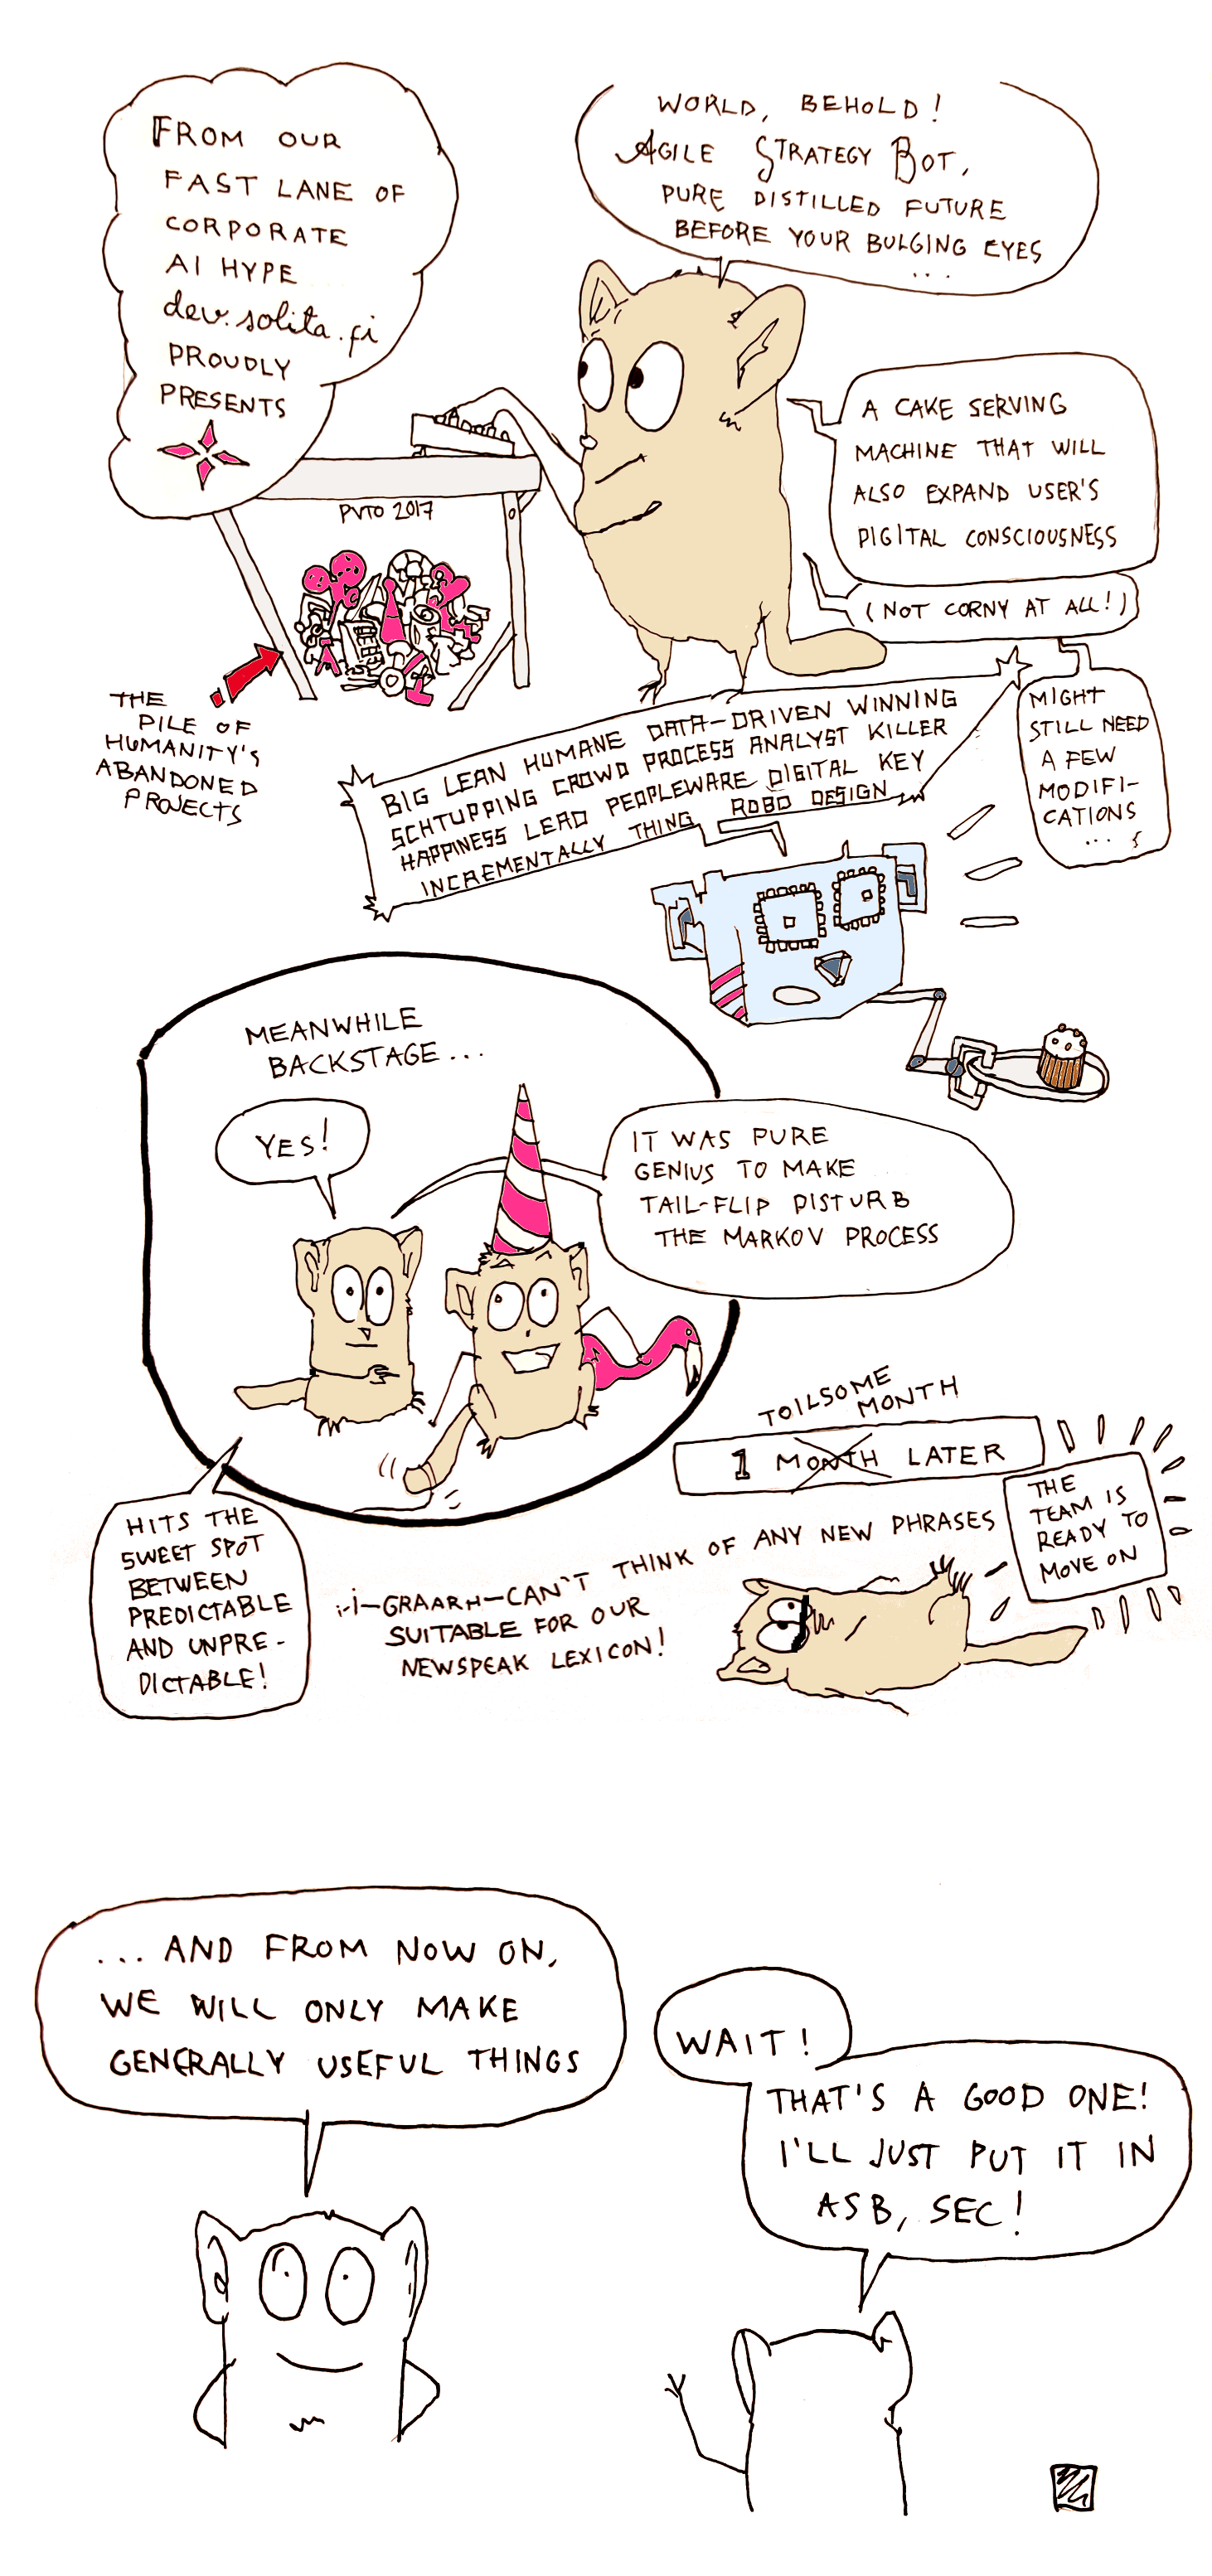 FROM OUR
FAST LANE OF
CORPORATE
AI HYPE
dev.solita.fi
PROUDLY
PRESENTS
WORLD, BEHOLD!
AGILE STRATEGY BOT,
PURE DISTILLED FUTURE
BEFORE YOUR BULGING EYES
...
A CAKE SERVING
MACHINE THAT WILL
ALSO EXPAND USER'S
DIGITAL CONSCIOUSNESS
(NOT CORNY AT ALL!)
PVTO 2017
THE
PILE OF
HUMANITY'S
ABANDONED
PROJECTS
MIGHT
STILL NEED
A FEW
MODIFI-
CATIONS
...
BIG LEAN HUMANE DATA-DRIVEN WINNING
SCHTUPPING CROWD PROCESS ANALYST KILLER
HAPPINESS LEAD PEOPLEWARE DIGITAL KEY
INCREMENTALLY THING ROBO DESIGN
MEANWHILE
BACKSTAGE...
YES!
IT WAS PURE
GENIUS TO MAKE
TAIL-FLIP DISTURB
THE MARKOV PROCESS
HITS THE
SWEET SPOT
BETWEEN
PREDICTABLE
AND UNPRE-
DICTABLE!
TOILSOME
MONTH
1 MONTH LATER
THE
TEAM IS
READY TO
MOVE ON
i-I-GRAARH-CAN'T THINK OF ANY NEW PHRASES
SUITABLE FOR OUR
NEWSPEAK LEXICON!
... AND FROM NOW ON,
WE WILL ONLY MAKE
GENERALLY USEFUL THINGS
WAIT!
THAT'S A GOOD ONE!
I'LL JUST PUT IT IN
ASB, SEC!